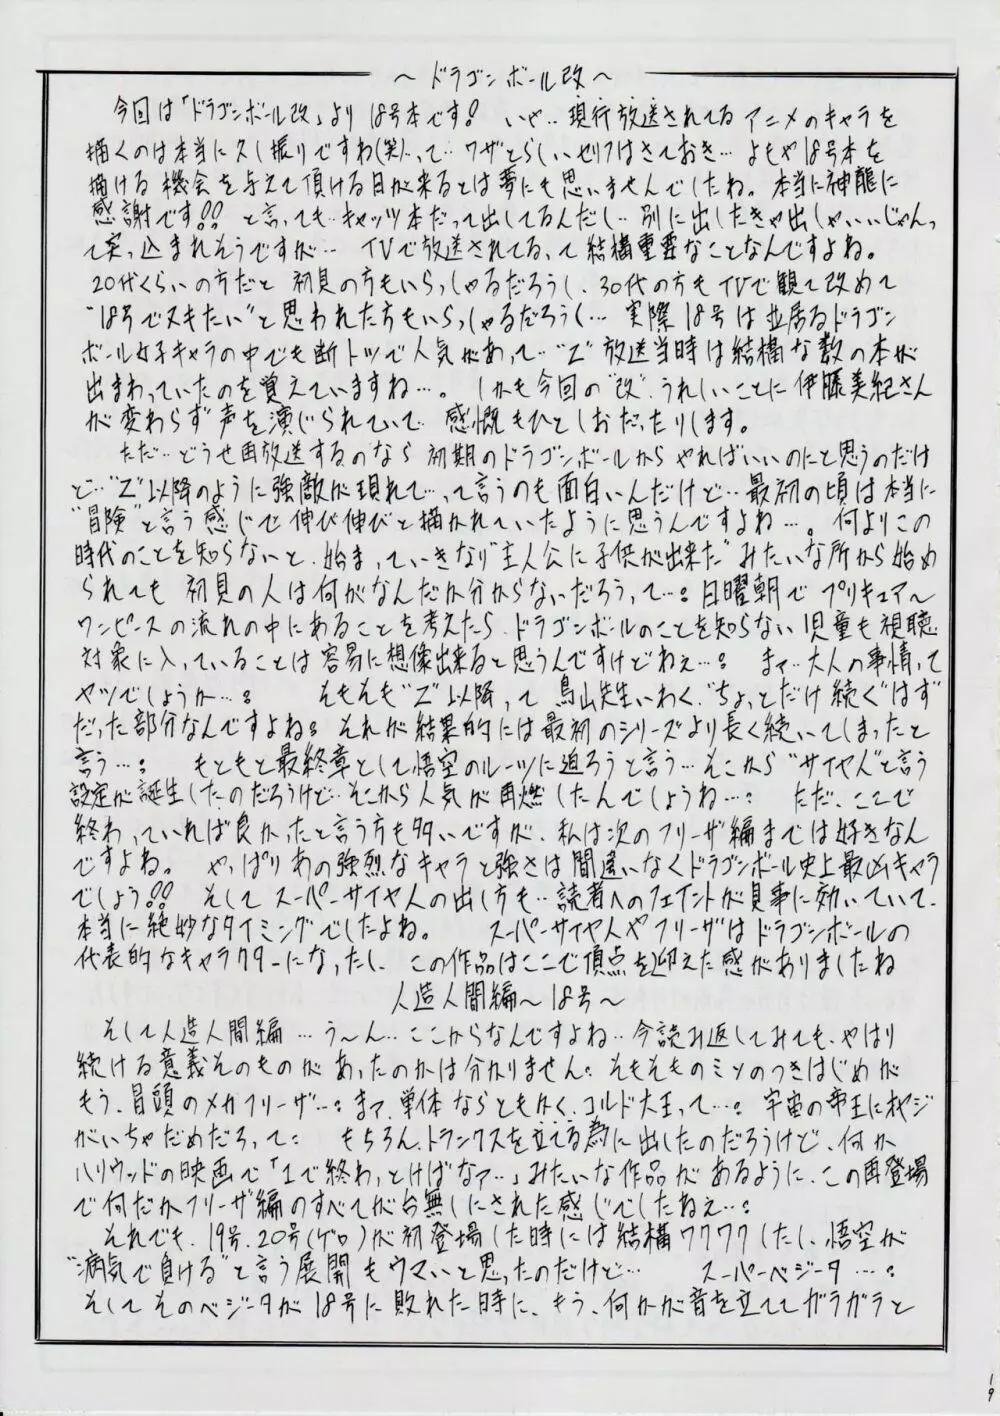 ～ドラゴンボール改～
今回は「ドラゴンボール改」より18号本です! いや‥現行放送されてるアニメのキャラを
描くのは本当に久し振りですね(笑)‥って‥ワザとらしいセリフはさておき… よもや18号本を
描ける機会を与えて頂ける日が来るとは夢にも思いませんでしたね。本当に神龍に
感謝です!! と言っても‥キャッツ本だって出してるんだし‥別に出したきゃ出しゃいいじゃんっ
て突っ込まれそうですが… TVで放送されてる、って結構重要なことなんですよね。
20代くらいの方だと 初見の方もいらっしゃるだろうし、30代の方もTVで観て改めて
"18号でヌキたい"と思われた方もいらっしゃるだろうし… 実際18号は並居るドラゴン
ボール女子キャラの中でも断トツで人気があって‥"Z"放送当時は結構な数の本が
出まわっていたのを覚えていますね…。しかも今回の"改"、うれしいことに伊藤美紀さん
が変わらず声を演じられていて、感慨もひとしおだったりします。
ただ‥どうせ再放送するのなら 初期のドラゴンボールからやればいいのにと思うのだけ
ど‥"Z"以降のように強敵が現れて…って言うのも面白いんだけど‥最初の頃は本当に
"冒険"と言う感じで伸び伸びと描かれていたように思うんですよね…。何よりこの
時代のことを知らないと、始まっていきなり"主人公に子供が出来た"みたいな所から始め
られても 初見の人は何がなんだか分からないだろうって…。日曜朝で プリキュア～
ワンピースの流れの中にあることを考えたら、ドラゴンボールのことを知らない児童も視聴
対象に入っていることは容易に想像出来ると思うんですけどねぇ…。 まァ‥大人の事情って
ヤツでしょうか…。 そもそも"Z"以降って 鳥山先生いわく、"ちょっとだけ続く"はず
だった部分なんですよね。それが結果的には最初のシリーズより長く続いてしまったと
言う…。 もともと最終章として悟空のルーツに迫ろうと言う…そこから"サイヤ人"と言う
設定が誕生したのだろうけど‥そこから人気が再燃したんでしょうね…。 ただ、ここで
終わっていれば良かったと言う方も多いですが、私は次のフリーザ編までは好きなん
ですよね。 やっぱりあの強烈なキャラと強さは間違いなくドラゴンボール史上最凶キャラ
でしょう!! そしてスーパーサイヤ人の出し方も‥読者へのフェイントが見事に効いていて、
本当に絶妙なタイミングでしたよね。 スーパーサイヤ人やフリーザはドラゴンボールの
代表的なキャラクターになったし、この作品はここで頂点を迎えた感がありましたね
人造人間編～18号～
そして人造人間編…う～ん‥ここからなんですよね‥今読み返してみても、やはり
続ける意義そのものがあったのかは分かりません。そもそものミソのつきはじめが
もう、冒頭のメカフリーザ…。まァ、単体ならともかく、コルド大王って…。宇宙の帝王にオヤジ
がいちゃだめだろって。 もちろん、トランクスを立てる為に出したのだろうけど、何か
ハリウッドの映画で「1で終わっとけばなァ…」みたいな作品があるように、この再登場
で何だかフリーザ編のすべてが台無しにされた感じでしたねぇ…。
それでも、19号、20号(ゲロ)が初登場した時には結構ワクワクしたし、悟空が
"病気で負ける"と言う展開もウマいと思ったのだけど… スーパーベジータ…。
そしてそのベジータが18号に敗れた時に、もう、何かが音を立ててガラガラと
19